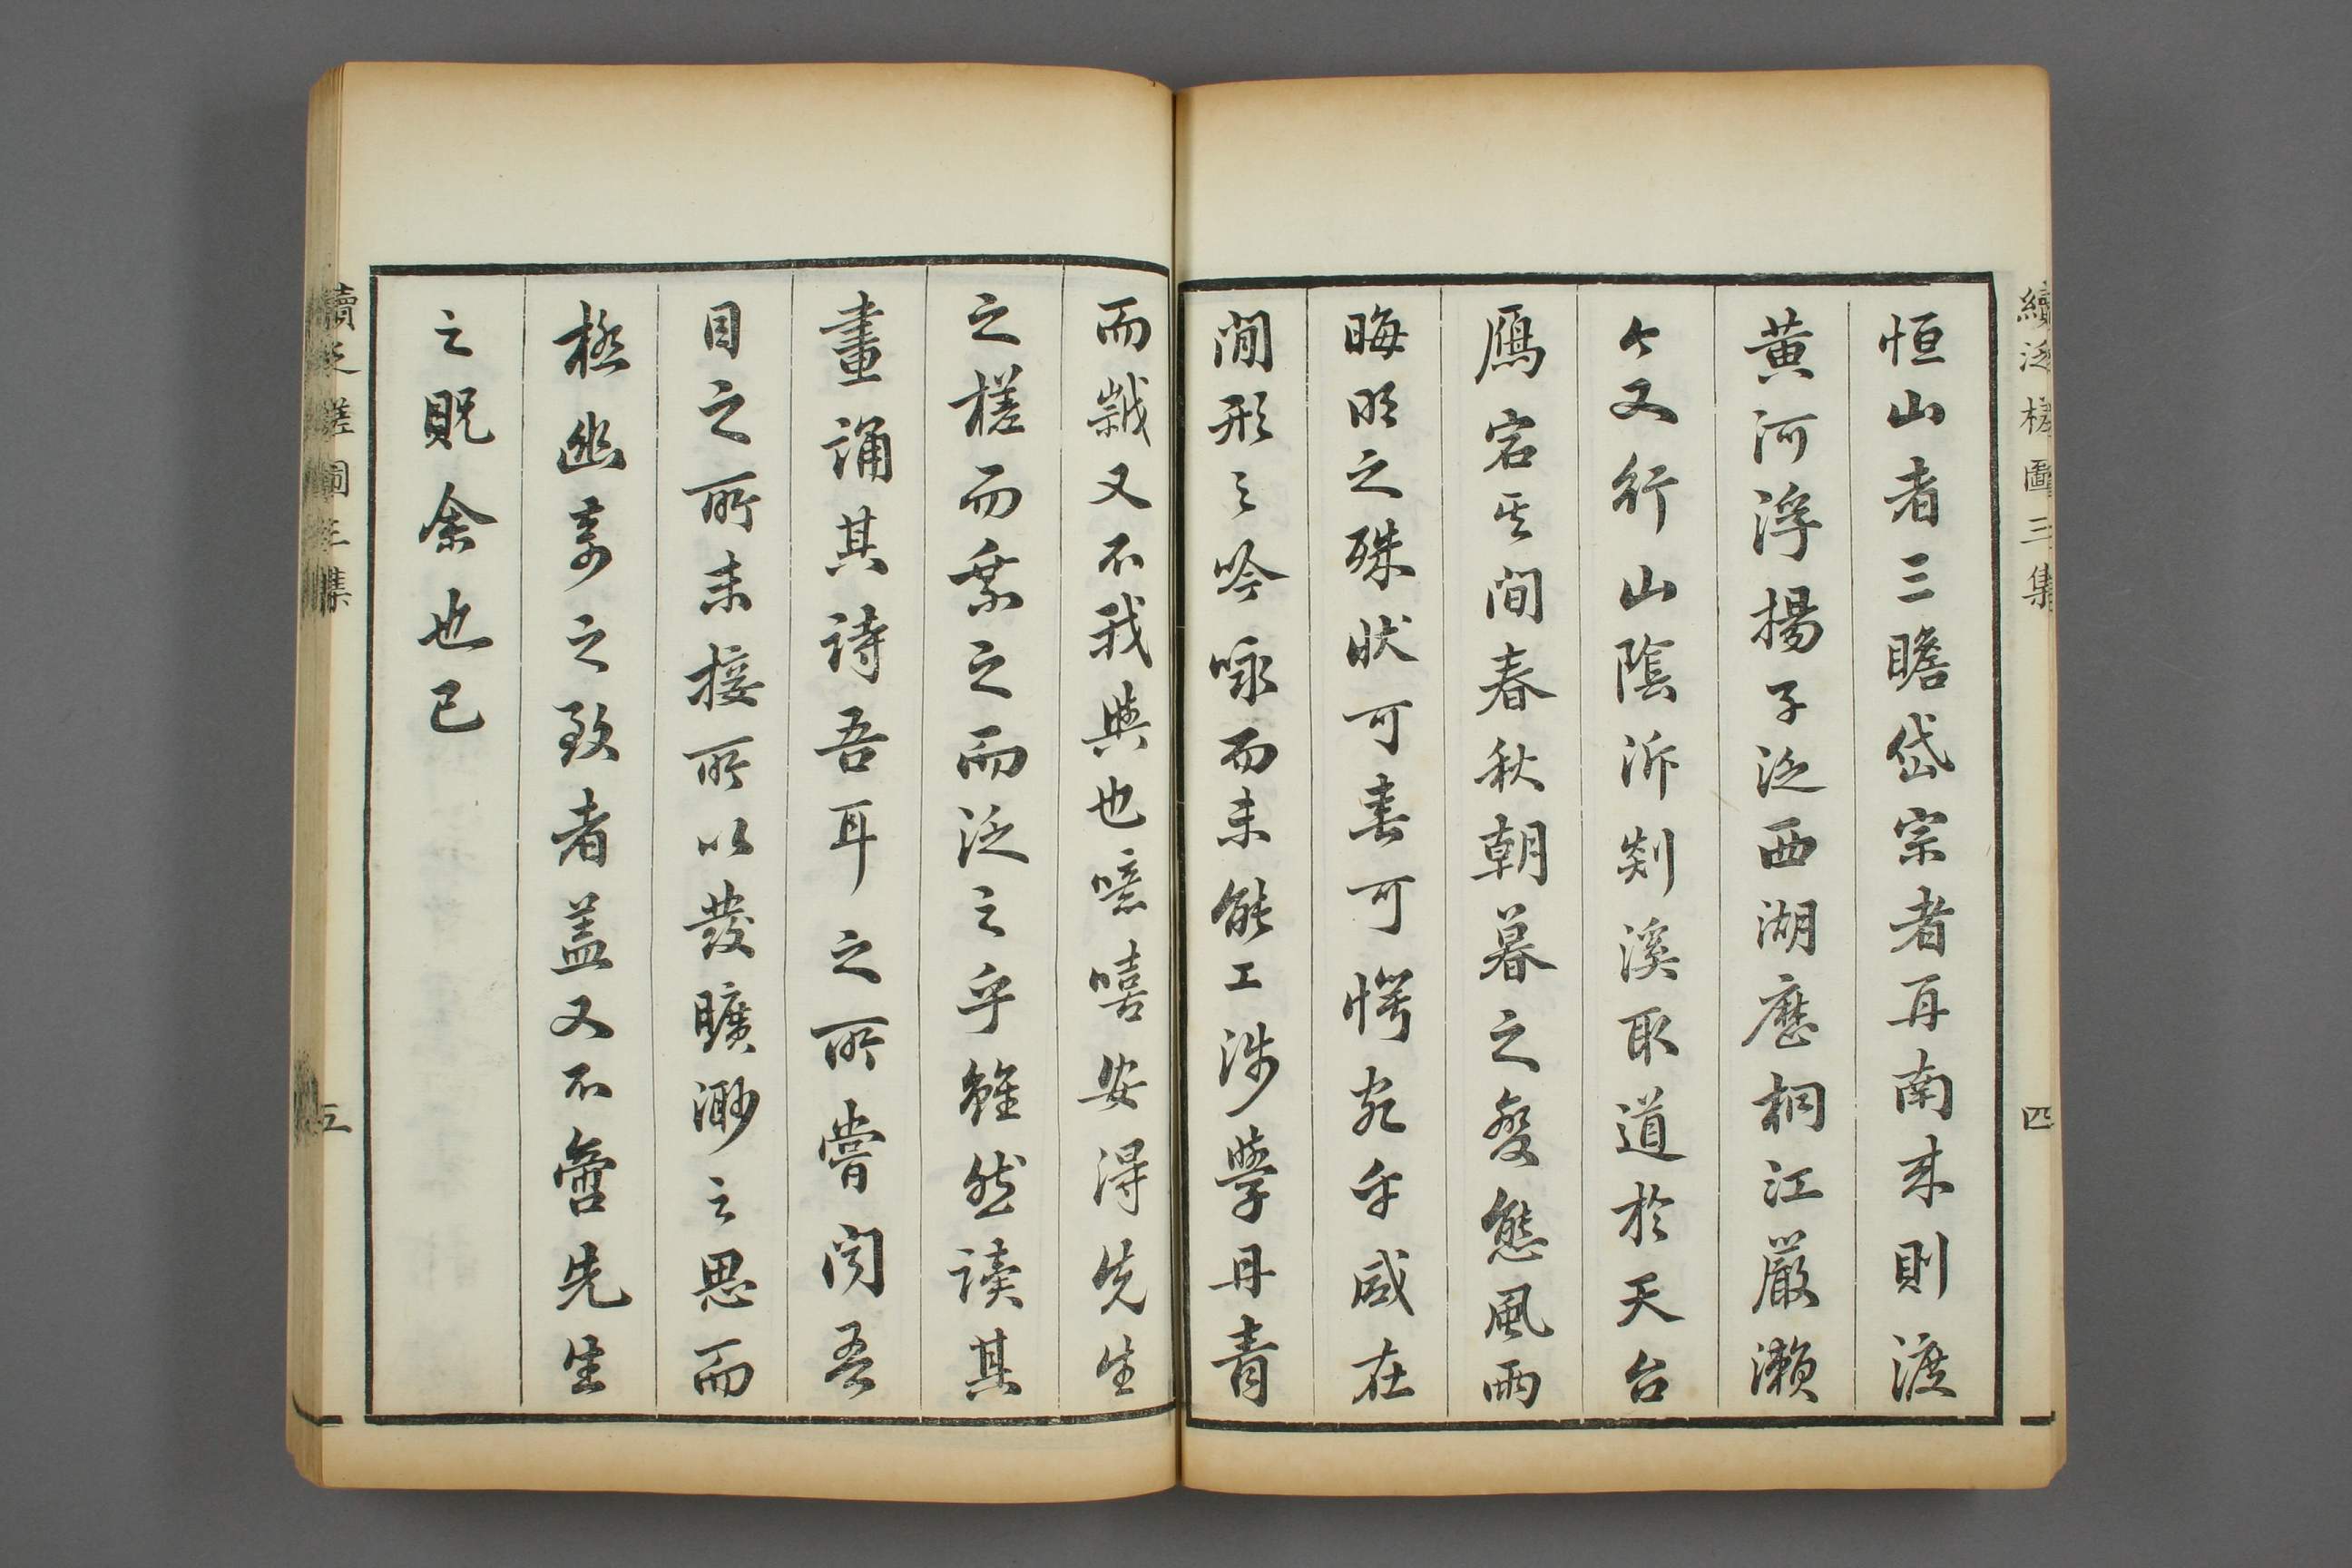 續泛槎圖三集
四
恒山者三瞻岱宗者再南来則渡
黄河浮揚子泛西湖歷桐江嚴瀨
今又行山陰泝剡溪取道於天台
鴈宕其間春秋朝暮之變態風雨
晦明之殊狀可喜可愕宛乎咸在
間形之吟咏而未能工涉學丹青
而 又不我與也噫嘻安得先生
之槎而乘之而泛之乎雖然讀其
畫誦其詩吾耳之所嘗聞吾
目之所未接所以發曠渺之思而
極幽奇之致者蓋又不啻先生
之貺余也已
續泛槎圖三集
五